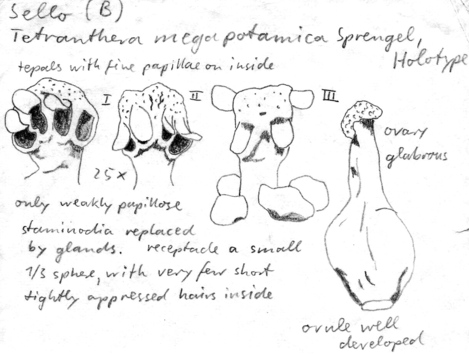 Sello (B)
Tetranthera megapotamica Sprengel,
Holotype
tepals with fine papillae on inside
I
II
III
25x
ovary
glabrous
only weakly papillose
staminodia replaced
by glands. receptacle a small
1/3 sphere, with very few short
tightly appressed hairs inside
ovule well
developed